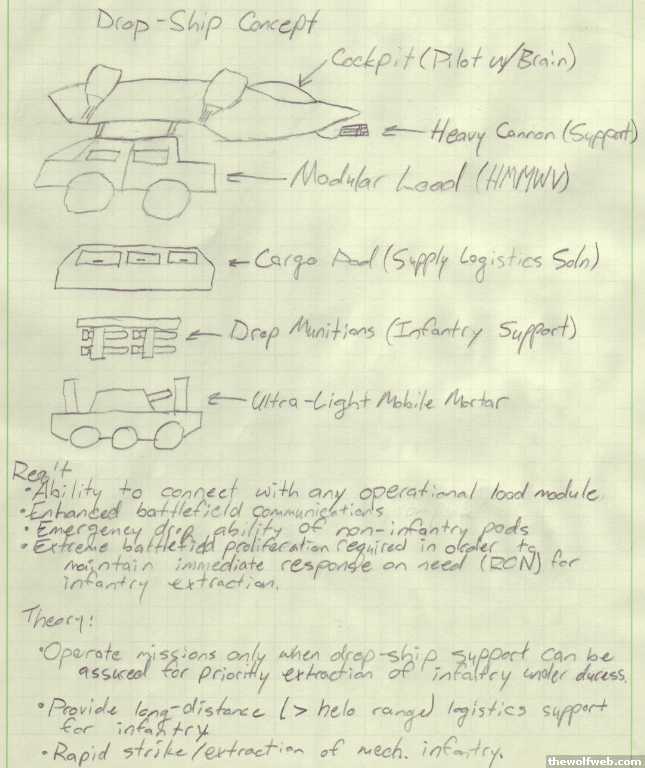 Drop-Ship Concept
Cockpit (Pilot w/Brain)
Heavy Cannon (Support)
Modular Load (HMMWV)
Cargo Pod (Supply Logistics Soln)
Drop Munitions (Infantry Support)
Ultra-Light Mobile Mortar
Req't
• Ability to connect with any operational load module.
• Enhanced battlefield communications
• Emergency drop ability of non-infantry pods
• Extreme battlefield proliferation required in order to
maintain immediate response on need (RON) for
infantry extraction.
Theory:
• Operate missions only when drop-ship support can be
assured for priority extraction of infantry under duress.
• Provide long-distance (> helo range) logistics support
for infantry
• Rapid strike/extraction of mech. infantry.
thewolfweb.com